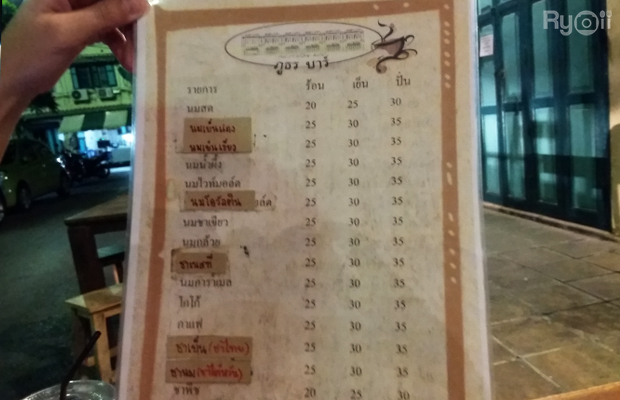 Ryoii
ภูธร บาร์
รายการ ร้อน เย็น ปั่น
นมสด 20 25 30
นมเย็นแดง 25 30 35
นมเย็นเขียว 25 30 35
นมน้ำผึ้ง 25 30 35
นมไวท์มอล์ต 25 30 35
นมโอวัลติน 25 30 35
นมชาเขียว 25 30 35
นมกล้วย 25 30 35
ชาเนสที 25 30 35
นมคาราเมล 25 30 35
โกโก้ 25 30 35
กาแฟ 25 30 35
ชาเย็น (ชาไทย) 25 30 35
ชานม (ชาไต้หวัน) 25 30 35
ชาพีช 20 25 30